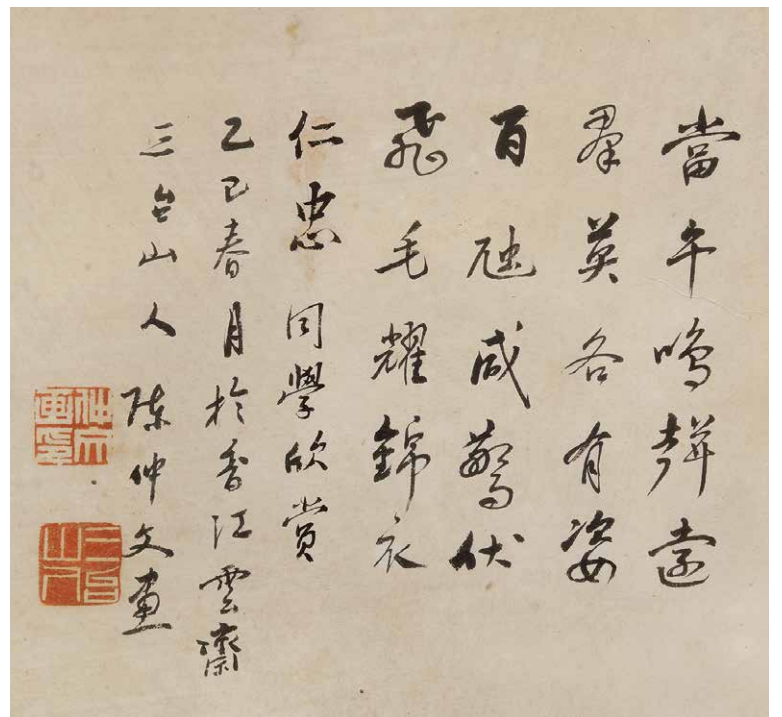 當午鳴聲遠
羣英各有姿
百虺咸驚伏
飛毛耀錦衣
仁忠同學欣賞
乙巳春月於香江雲齋
三台山人陳仲文畫
仲文畫印
三台山人